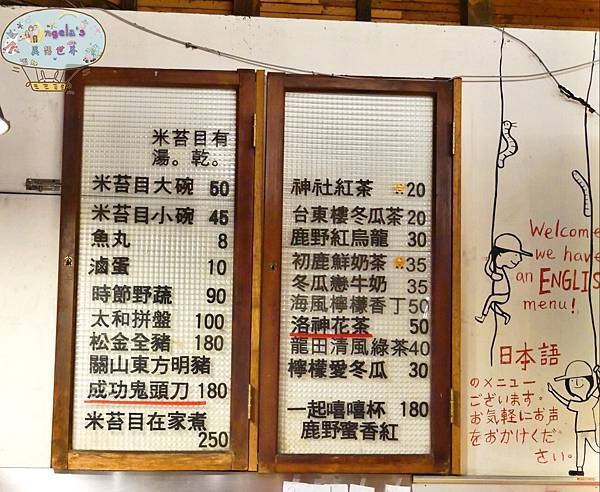 Angela's
異想世界
米苔目有
湯。乾。
米苔目大碗 60
米苔目小碗 45
魚丸 8
滷蛋 10
時節野蔬 90
太和拼盤 100
松金全豬 180
關山東方明豬
成功鬼頭刀 180
米苔目在家煮
250
神社紅茶 20
台東樓冬瓜茶 20
鹿野紅烏龍 30
初鹿鮮奶茶 35
冬瓜戀牛奶 35
海風檸檬香丁 50
洛神花茶 50
龍田清風綠茶 40
檸檬愛冬瓜 30
一起嘻嘻杯 180
鹿野蜜香紅
Welcome
we have
an ENGLIS
menu!
日本語
のメニュー
ございます。
お気軽にお声
をおかけくだ
さい。